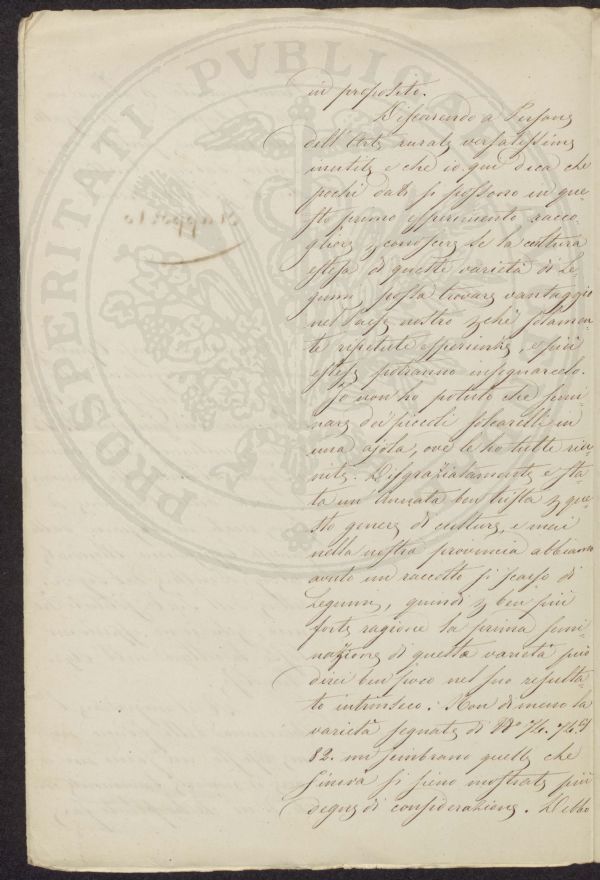 PROSPERITATI PVBLICAE
Rapporto
in proposito.
Discorrendo a Persone
dell'Arte rurale versatissime
inutile e che io qui dica che
pochi dati si possono in que-
sto primo esperimento racco-
gliere, conoscere se la cultura
estesa di queste varietà di Le-
gumi, possa trovare vantaggio
nel Paese nostro chè solamen-
te repetute esperienze, e più
estese potranno insegnarcelo.
Io non ho potuto che semi-
nare dei piccoli solcarelli in
una ajola, ove le ho tutte riu-
nite. Disgraziatamente è sta-
ta un'annata ben trista que-
sto genere di culture, e mai
nella nostra provincia abbiamo
avuto un raccolto si scarso di
Legumi, quindi ben più
forte ragione la prima semi-
nazione di queste varietà può
dirci ben poco nel suo resulta-
to intrinseco. Non di meno la
varietà segnate di No 74. 76. 9
82. mi sembrano quelle che
finora si sieno mostrate più
degne di considerazione. Debbo